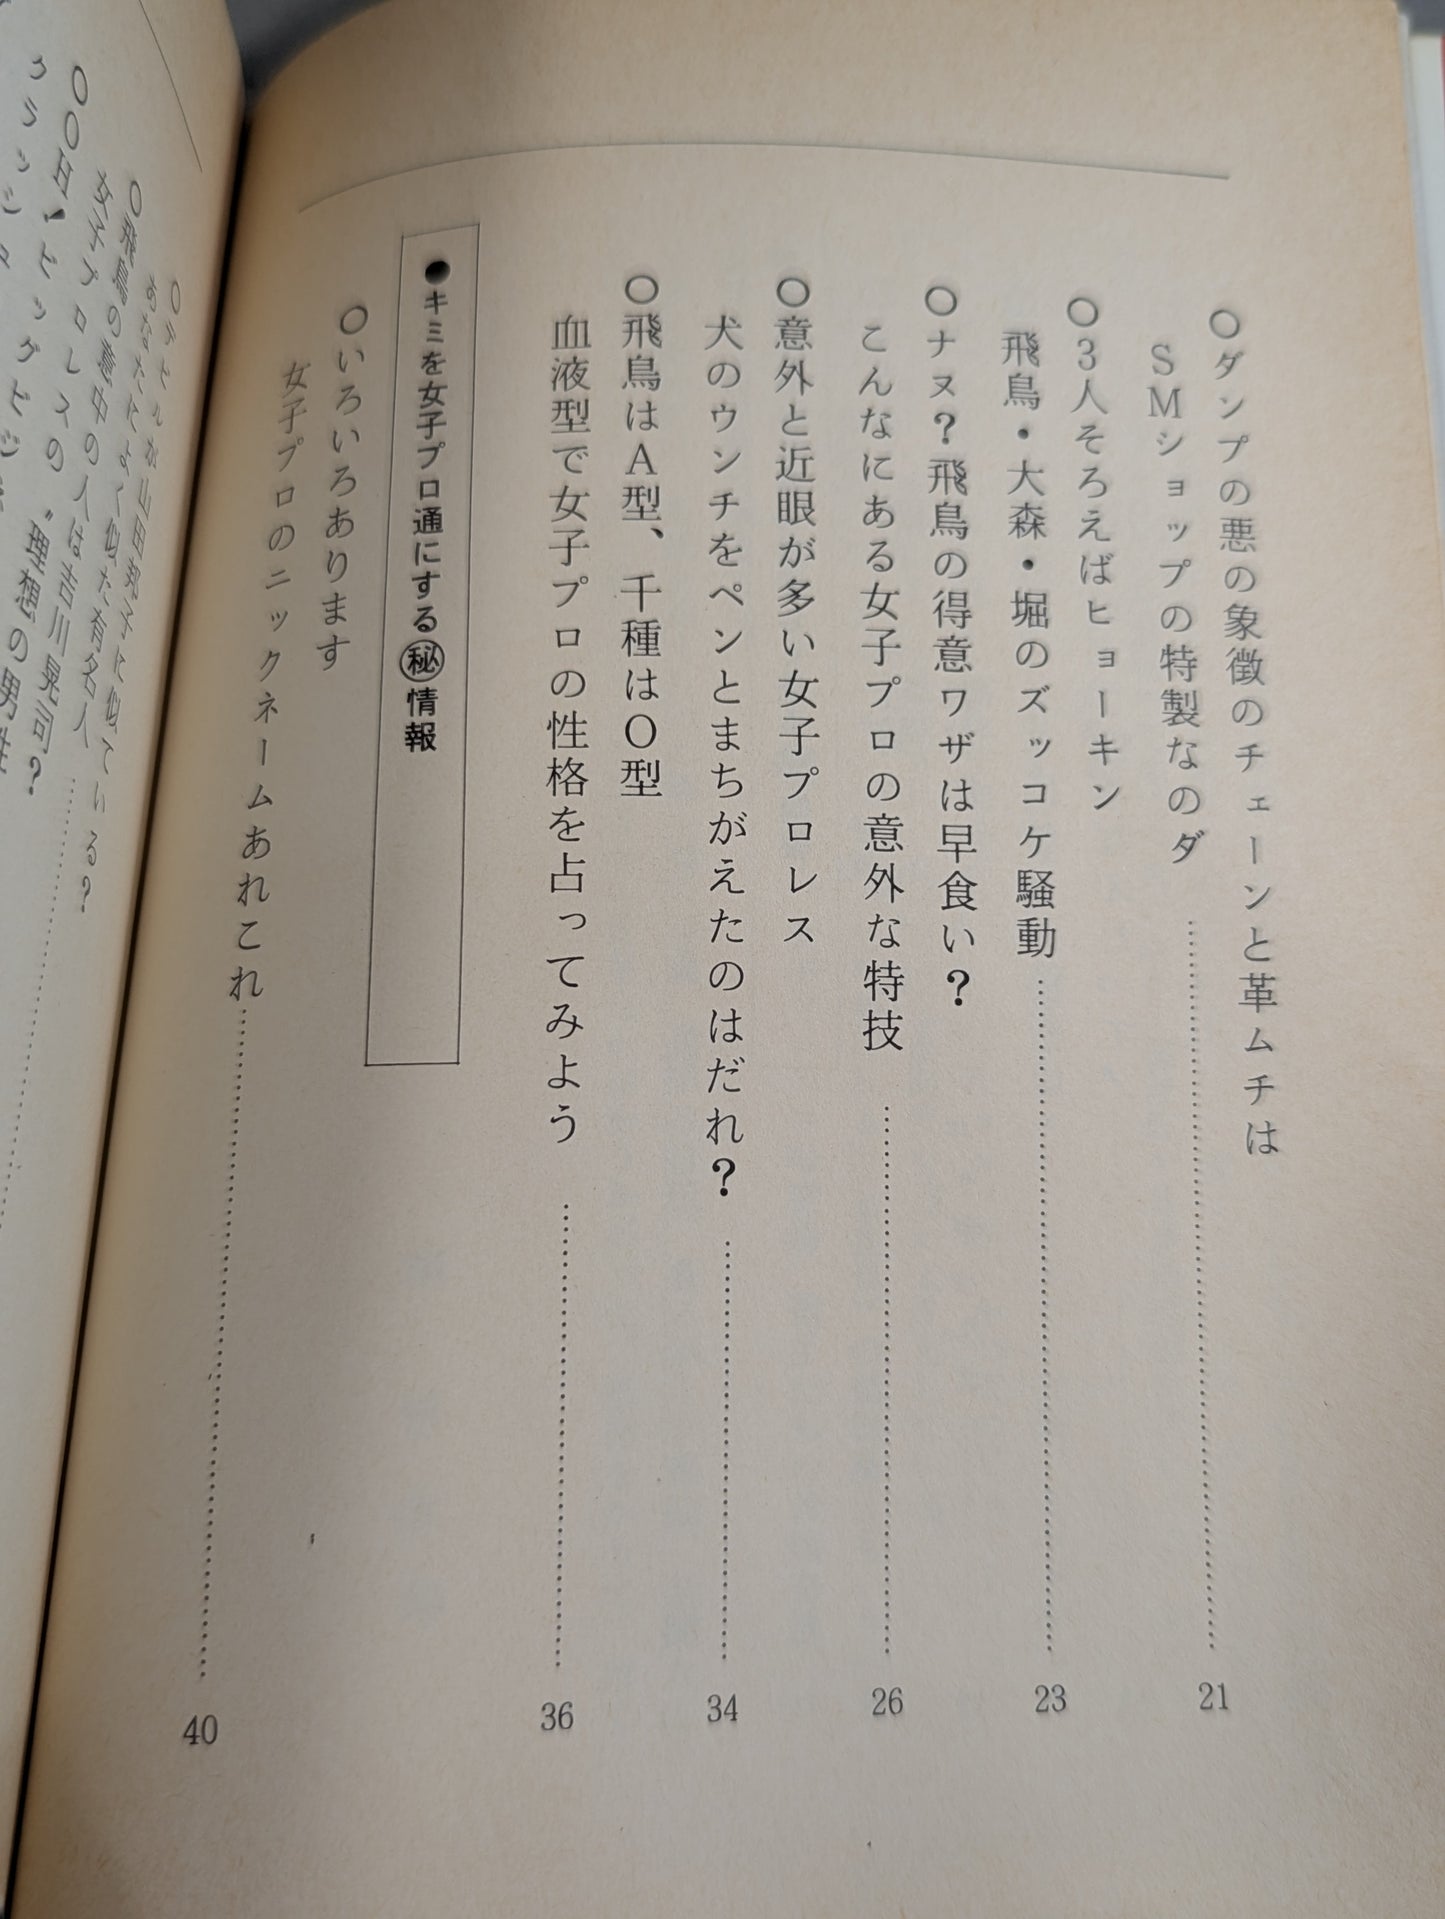 ○ダンプの悪の象徴のチェーンと革ムチは
SMショップの特製なのダ……21
○3人そろえばヒョーキン
飛鳥・大森・堀のズッコケ騒動……23
○ナヌ?飛鳥の得意ワザは早食い?
こんなにある女子プロの意外な特技……26
○意外と近眼が多い女子プロレス
犬のウンチをペンとまちがえたのはだれ?……34
○飛鳥はA型、千種はO型
血液型で女子プロの性格を占ってみよう……36
●キミを女子プロ通にする㊙情報
○いろいろあります
女子プロのニックネームあれこれ……40
あなたによく似た有名人……
○飛鳥の意中の人は吉川晃司?
女子プロレスの〝理想の男性